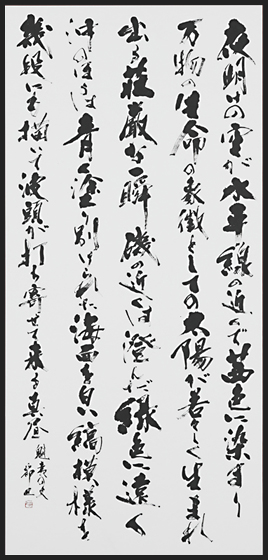 夜明けの雲が水平線の近くで茜色に染まり
万物の生命の象徴としての太陽が若々しく生まれ
出る荘厳な一瞬 磯の近くは澄んだ緑色に遠く
沖のほうは青く塗り別けられた海面を白い縞模様を
幾段にも描いて波頭が打ち寄せて来る真昼